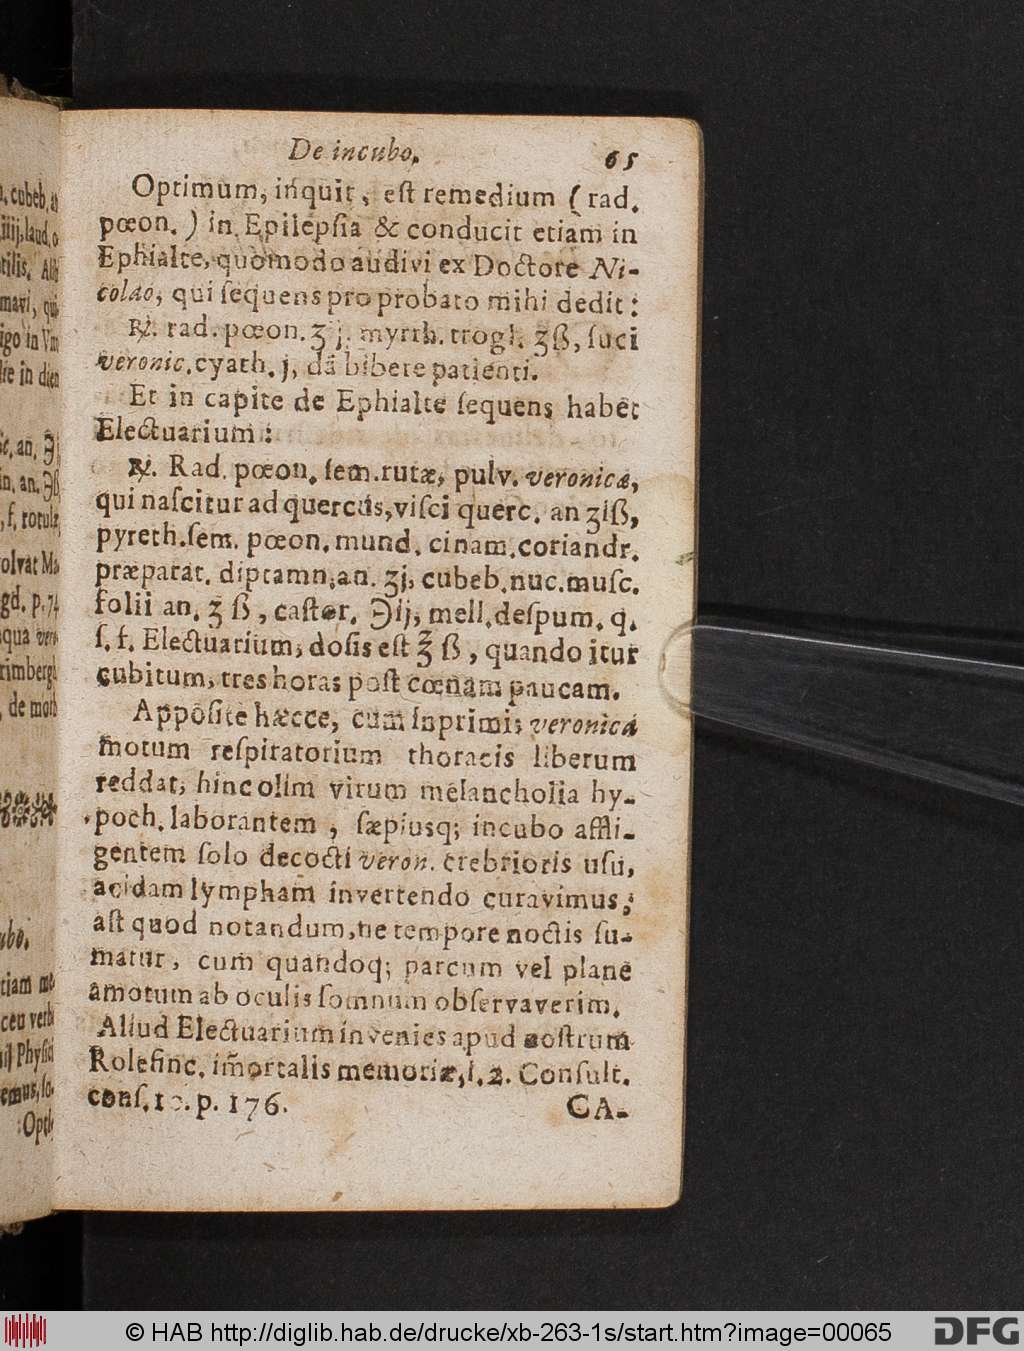 , cubeb, a
iiij, laud. o
tilis. Alii
mavi, qui
igo in Vin
lre in dien
se, an. ℈j
in. an. ℈ß
, f. rotulæ
olvat Ma
gd. p. 74
qua vero
rimberg
, de morb
ubo.
tiam me
ceu verbi
il Physici
emus, so.
:Opti-
De incubo. 65
Optimum, inquit, eſt remedium (rad.
pœon.) in Epilepſia & conducit etiam in
Ephialte, quomodo audivi ex Doctore Ni-
colao, qui ſequens pro probato mihi dedit:
℞. rad. pœon. ʒ j. myrrh. trogl. ʒß, ſuci
veronic. cyath. j, dā bibere patienti.
Et in capite de Ephialte ſequens habet
Electuarium:
℞. Rad. pœon. ſem. rutæ, pulv. veronicæ,
qui naſcitur ad quercûs, viſci querc. an ʒiß,
pyreth. ſem. pœon. mund. cinam. coriandr.
præparat. diptamn. an. ʒj, cubeb. nuc. muſc.
folii an. ʒ ß, caſtor. ℈ij, mell. deſpum. q.
ſ. f. Electuarium, doſis eſt ℥ ß, quando itur
cubitum, tres horas poſt cœnam paucam.
Appoſitè hæcce, cum inprimis veronica
motum reſpiratorium thoracis liberum
reddat, hinc olim virum melancholia hy-
poch. laborantem, ſæpiusq; incubo affli-
gentem ſolo decocti veron. crebrioris uſu,
acidam lympham invertendo curavimus;
aſt quod notandum, ne tempore noctis ſu-
matur, cum quandoq; parcum vel planè
amotum ab oculis ſomnum obſervaverim.
Aliud Electuarium invenies apud noſtrum
Rolefinc. im̄ortalis memoriæ, l. 2. Conſult.
conſ. 10. p. 176. CA-
© HAB http://diglib.hab.de/drucke/xb-263-1s/start.htm?image=00065
DFG